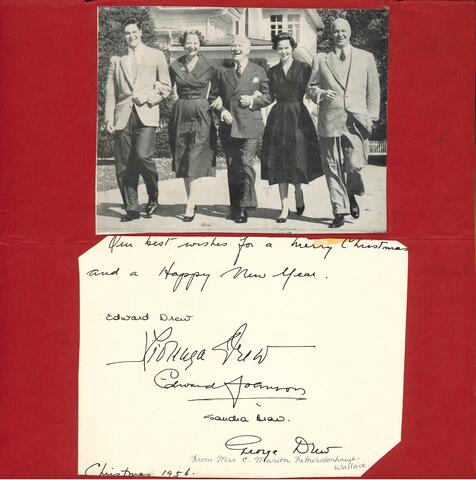 Our best wishes for a Merry Christmas
and a Happy New Year.
Edward Drew
Fiorenza Drew
Edward Johnson
Sandra Drew.
George Drew
From Mrs C. Marion Fetherstonhaugh-
Wallace
Christmas 1956.